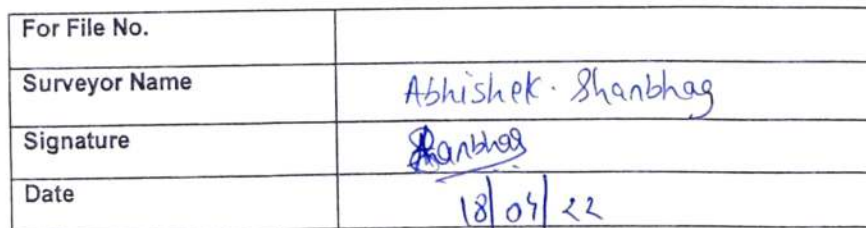 For File No.
Surveyor Name Abhishek. Shanbhag
Signature Shanbhag
Date 18/04/22